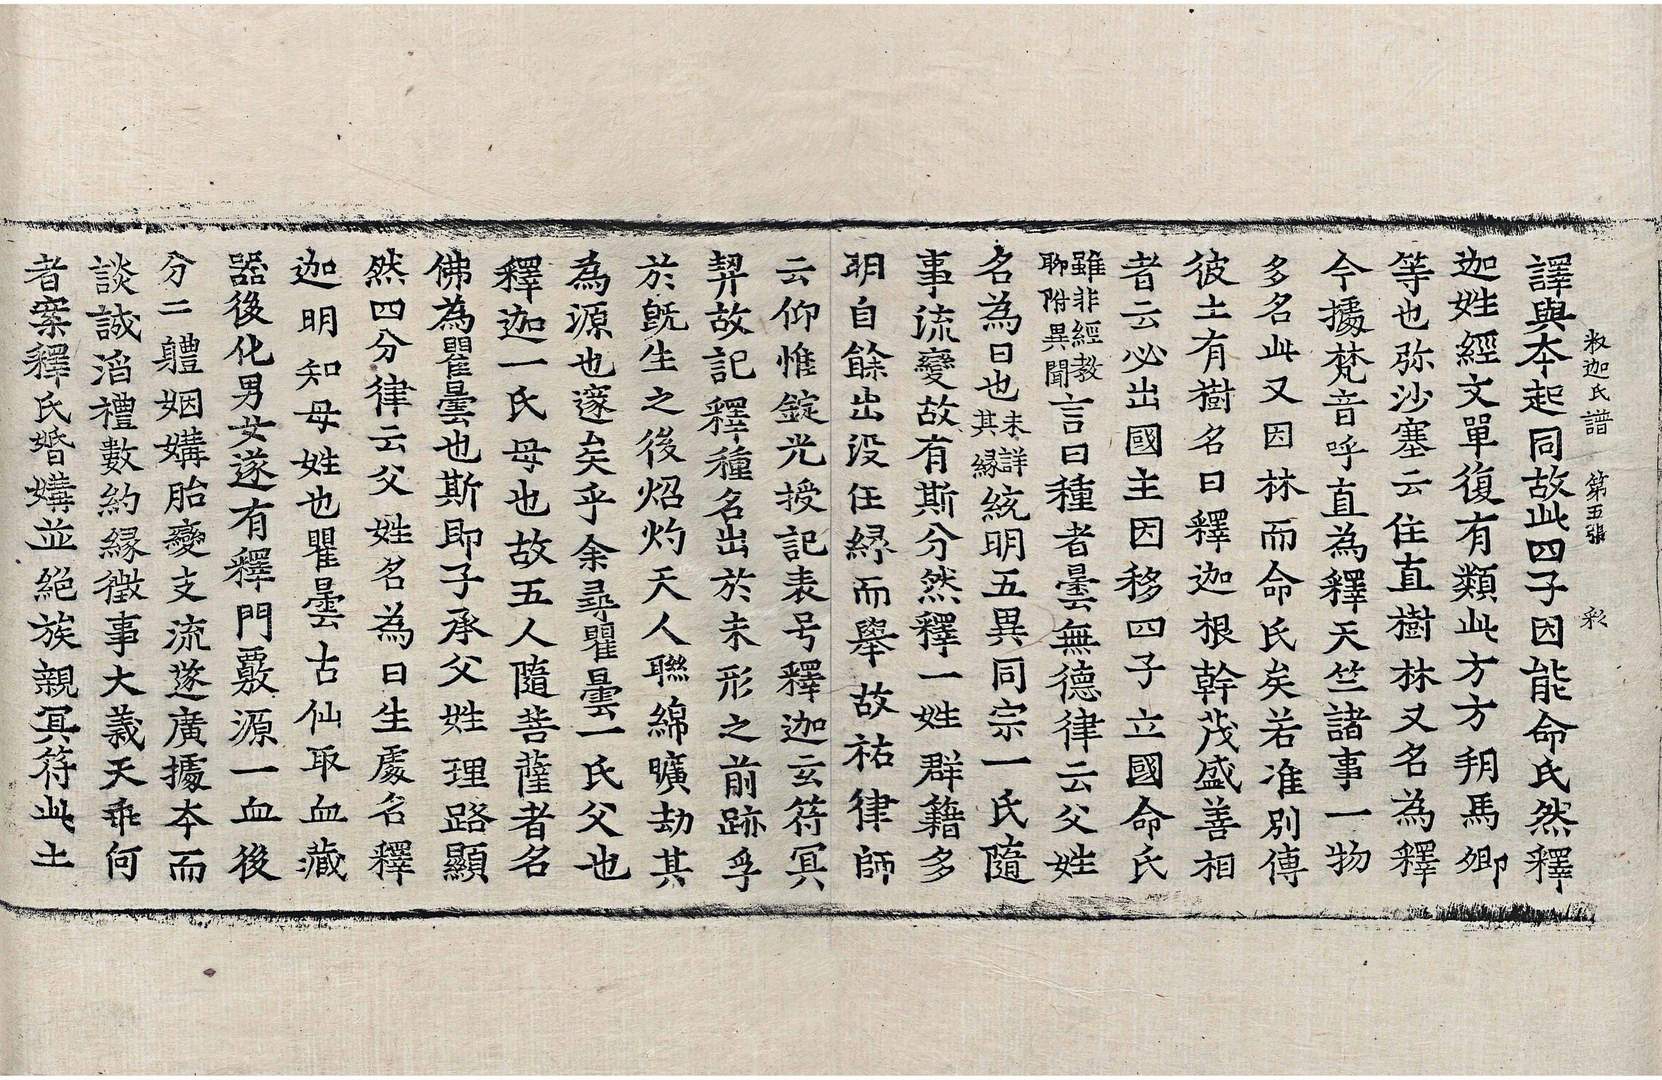 釈迦氏譜 第五張 彩
譯與本起同故此四子因能命氏然釋
迦姓經文單復有類此方方朔馬卿
等也弥沙塞云住直樹林又名為釋
今據梵音呼直為釋天竺諸事一物
多名此又因林而命氏矣若准別傳
彼土有樹名曰釋迦根幹茂盛善相
者云必出國主因移四子立國命氏
雖非經教聊附異聞言曰種者曇無德律云父姓
名為曰也未詳其縁統明五異同宗一氏隨
事流變故有斯分然釋一姓群籍多
明自餘出没任縁而舉故祐律師
云仰惟錠光授記表号釋迦玄符冥
契故記釋種名出於未形之前跡孚
於既生之後炤灼天人聯綿曠劫其
為源也邃矣乎余尋瞿曇一氏父也
釋迦一氏母也故五人隨菩薩者名
佛為瞿曇也斯即子承父姓理路顯
然四分律云父姓名為曰生處名釋
迦明知母姓也瞿曇古仙取血藏
器後化男女遂有釋門覈源一血後
分二軆姻媾胎變支流遂廣據本而
談誠滔禮數約縁徵事大義天乖何
者案釋氏婚媾並絕族親冥符此土